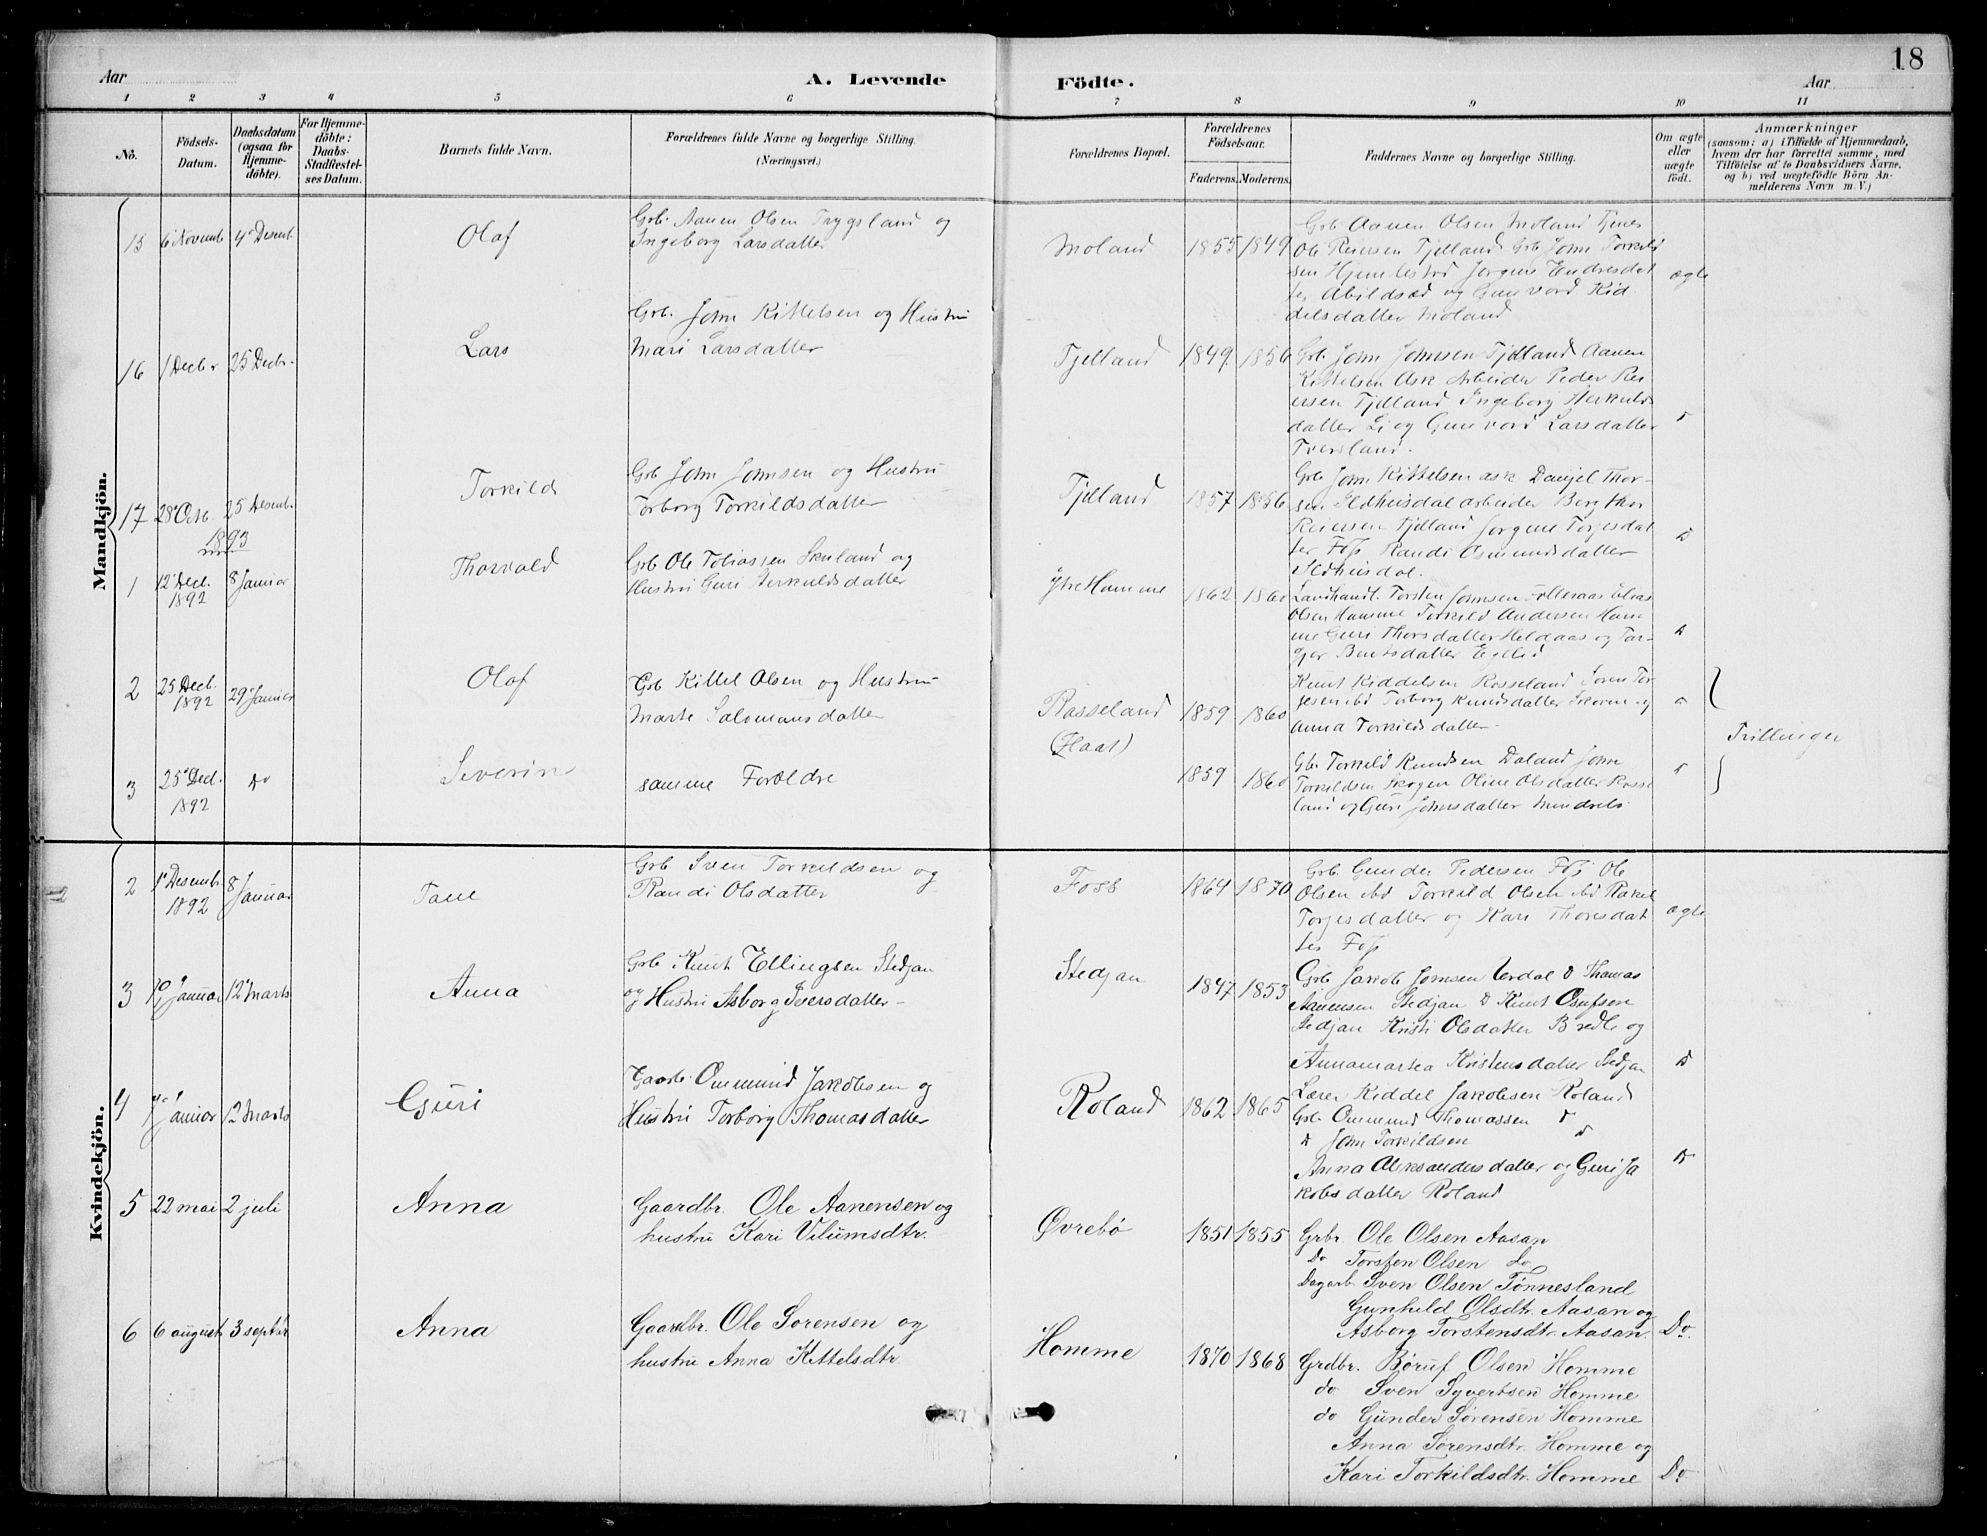 18
Aar
A. Levende
Födte.
Aar
1 2 3 4 5 6 7 8 9 10 11
No.
Födsels-
Datum.
Daabsdatum
(ogsaa for
Hjemme-
döbte).
For Hjemme-
döbte:
Daabs-
Stadfæstel-
ses Datum.
Barnets fulde Navn.
Forældrenes fulde Navne og borgerlige Stilling.
(Næringsvei.)
Forældrenes Bopæl.
Forældrenes
Födselsaar.
Faderens. Moderens.
Faddernes Navne og borgerlige Stilling.
Om ægte
eller
uægte
födt.
Anmærkninger
(saasom: a) i Tilfælde af Hjemmedaab,
hvem der har forrettet samme, med
Tilföielse af to Daabsvidners Navne.
og b) ved uægtefödte Börn An-
melderens Navn m. V.)
Mandkjön.
15 6 Novemb. 4 Desemb. Olaf
Grb. Aanen Olsen Trygsland og
Ingeborg Larsdatter
Moland 1855 1849
Grb Aanen Olsen Moland Tjenes
Ole Reiersen Tjelland Grb John Torkild
sen Hjemlestad Jorgine Endresdat
ter Abildsæd og Gunvord Kid
delsdatter Moland
ægte
16 1 Decbr 25 Decbr. Lars
Grb. John Kittelsen og Hustru
Mari Larsdatter
Tjelland 1849 1856
Grb John Johnsen Tjelland Aanen
Kittelsen Ask Arbeider Peder Rei
ersen Tjelland Ingeborg Herkulds
datter Li og Gunvord Larsdatter
Tversland.
17 28 Octb. 25 Desemb. Torkild
Grb John Johnsen og Hustru
Torborg Torkildsdatter
Tjelland 1857 1856
Grb John Kittelsen Ask Danjel Thor-
sen Ildhusdal arbeider Berg Thor
Reiersen Tjelland Jorgine Torjesdat
ter Foss Randi Osmundsdatter
Ildhusdal.
1893
1 12 Dec. 1892 8 Januar Thorvald
Grb Ole Tobiassen Skuland og
Hustru Guri Herkuldsdatter
Ytre Homme 1862 1860
Landhandl. Torsten Johnsen Follesaas Elias
Olsen Homme Torkild Andersen Hom
me Guri Thorsdatter Heldaas og Tor-
gjer Bentsdatter Eglid
2 25 Decb. 1892 29 Januar Olaf
Grb Kittel Olsen og Hustru
Marte Salomonsdatter
Rosseland
(Haat)
1859 1860
Knut Kiddelsen Rosseland Soren Tor
gesen ibd Torborg Knudsdatter Skoven og
Anna Torkildsdatter
Trillinger
3 25 Decb. 1892 Do Severin
samme Forældre
1859 1860
Gb. Torkild Knudsen Daland John
Torkildsen Skogen Oline Olsdatter Rosse
land og Guri Johnsdatter
Kvindekjön.
2 1 Desemb 1892 8 Januar Tane
Grb Sven Torkildsen og
Randi Olsdatter
Foss 1864 1870
Grb Gunder Pedersen Foss Ole
Olsen ibd Torkild Olsen ibd Rakel
Torjesdatter og Kari Thorsdat
ter Foss
ægte
3 10 Januar 12 Marts Anna
Grb Knut Ellingsen Stedjan
og Hustru Asborg Iversdatter
Stedjan 1847 1853
Grb Jakob Jomsen Verdal Do Thomas
Aanensen Stedjan Do Knut Osufsen
Stedjan Kristi Olsdatter Bredli og
Annamartea Kristensdatter Stedjan
4 7 Januar 12 Marts Guri
Gaardb. Ommund Jakobsen og
Hustru Torborg Thomasdatter
Roland 1862 1865
Lærer Kiddel Jakobsen Roland
Grb Ommund Thomassen Do
Do John Torkildsen Do
Anna Aleksandersdatter og Guri Ja
kobsdatter Roland
Do
5 22 mai 2 juli Anna
Gaardbr. Ole Aanensen og
hustru Kari Vilumsdtr.
Øvrebø 1851 1855
Grbr. Ole Olsen Aasan
Do Torsten Olsen do
Dagarb. Sven Olsen Tønnesland
Gunhild Olsdtr. Aasan og
Asborg Torstensdtr. Aasan.
Do.
6 6 august 3 septbr Anna
Gaardbr. Ole Sorensen og
hustru Anna Kittelsdtr.
Homme 1870 1868
Grdbr. Børuf Olsen Homme
do Sven Syvertsen Homme
do Gunder Sørensen Homme
Anna Sørensdtr. Homme og
Kari Torkildsdtr. Homme
Do.